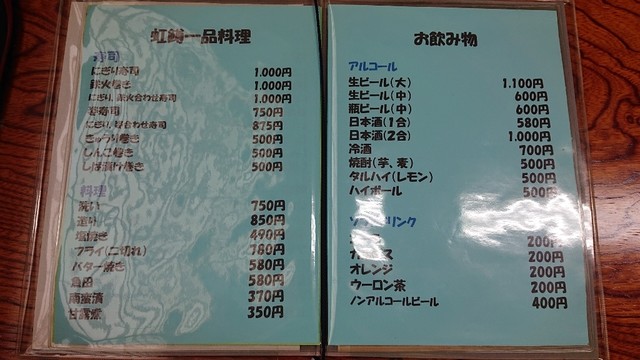 虹鱒一品料理
寿司
にぎり寿司 1.000円
鉄火巻き 1.000円
にぎり、鉄火合わせ寿司 1.000円
750円
875円
きゅうり巻き 500円
しんこ巻き 500円
しば漬け巻き 500円
料理
洗い 750円
造り 850円
塩焼き 490円
フライ(二切れ) 780円
バター焼き 580円
魚田 580円
南蛮漬 370円
甘露煮 350円
お飲み物
アルコール
生ビール(大) 1.100円
生ビール(中) 600円
瓶ビール(中) 600円
日本酒(1合) 580円
日本酒(2合) 1.000円
冷酒 700円
焼酎(芋、麦) 500円
タルハイ(レモン) 500円
ハイボール 500円
ソフトドリンク
200円
200円
オレンジ 200円
ウーロン茶 200円
ノンアルコールビール 400円